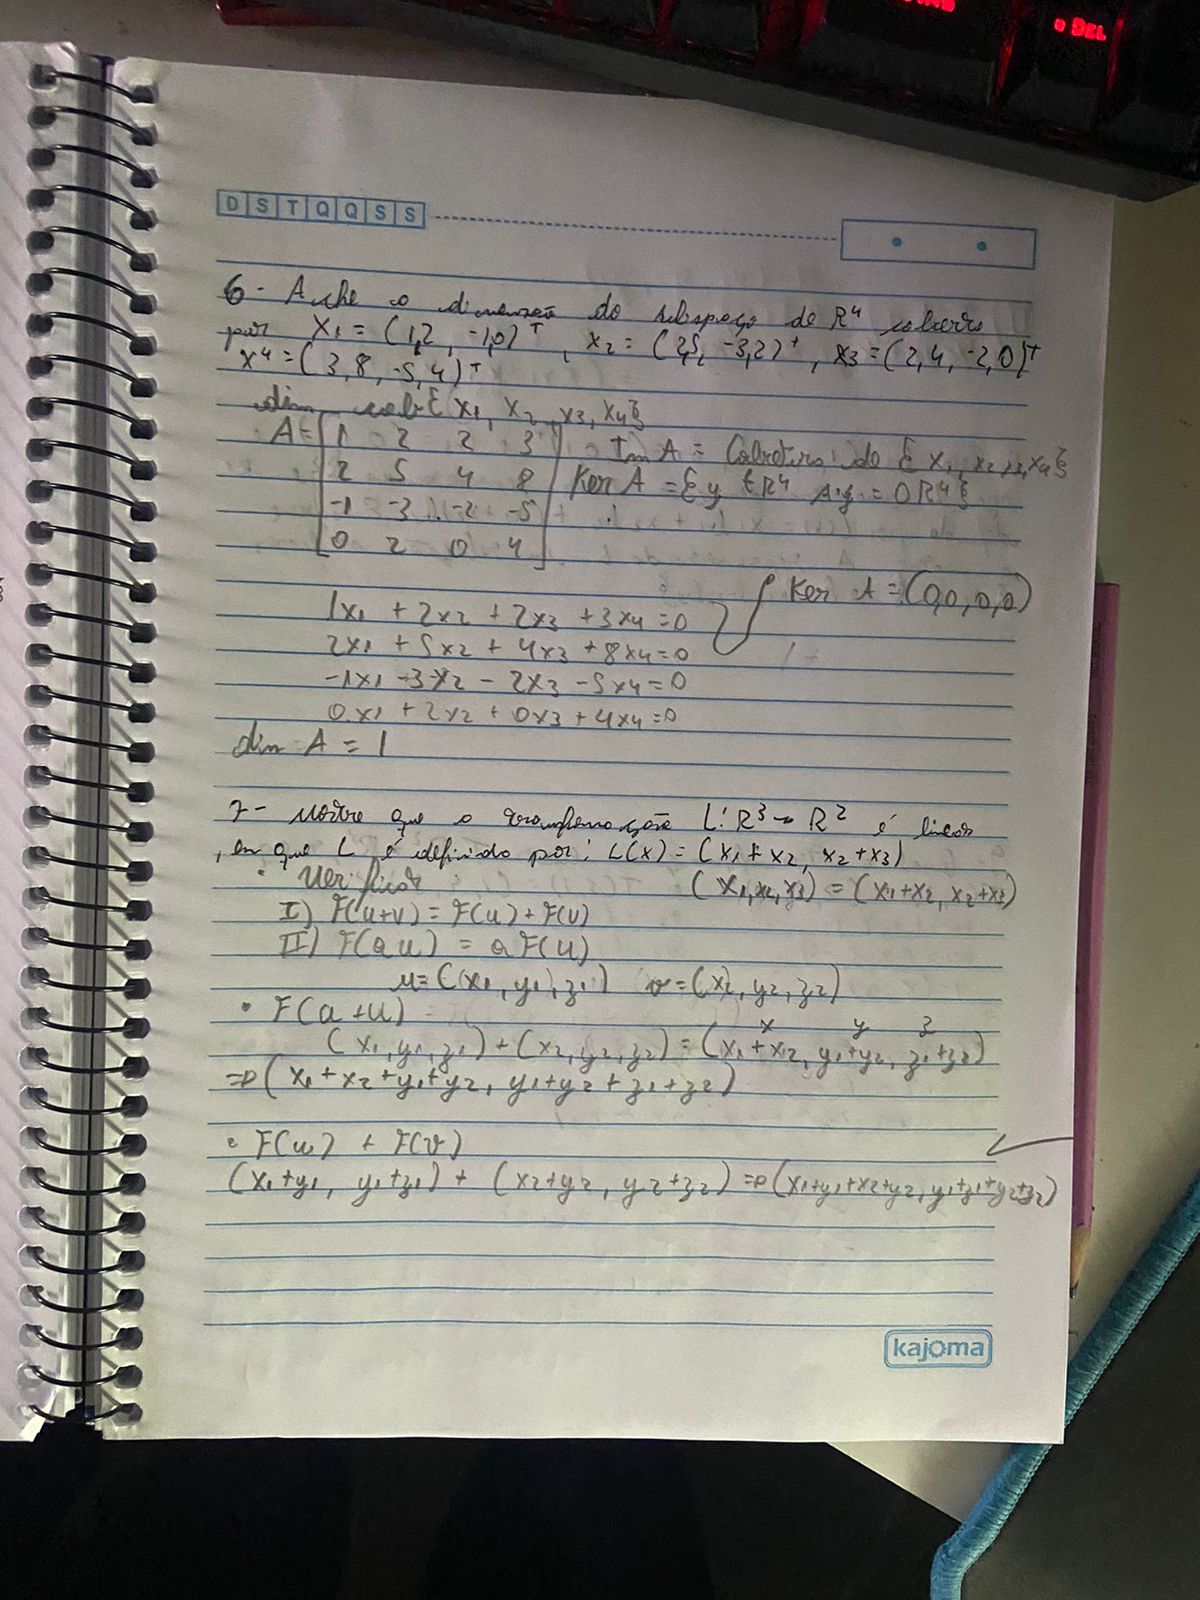 DEL
D S T Q Q S S
6- Ache a dimensão do subspaço de R⁴ coberto
por X1 = (1,2, -1,0)ᵀ, x2 = (2,5, -3,2)ᵀ, x3 = (2,4, -2,0)ᵀ
x⁴ = (3,8,-5,4)ᵀ
dim cob{x1, x2, x3, x4}
A = [1 2 2 3 Im A = Cobertura do {x1, x2, x3, x4}
2 5 4 8 Ker A = {y ∈ R⁴ A·y = 0R⁴}
-1 -3 -2 -5
0 2 0 4]
Ker A = (0,0,0,0)
1x1 + 2x2 + 2x3 + 3x4 = 0
2x1 + 5x2 + 4x3 + 8x4 = 0
-1x1 - 3x2 - 2x3 - 5x4 = 0
0x1 + 2x2 + 0x3 + 4x4 = 0
dim A = 1
7- Mostre que a transformação L: R³ → R² é linear
, em que L é definido por: L(x) = (x1 + x2, x2 + x3)
• Verificar (x1, x2, x3) = (x1+x2, x2+x3)
I) F(u+v) = F(u) + F(v)
II) F(au) = aF(u)
u = (x1, y1, z1) v = (x2, y2, z2)
• F(u+u)
x y z
(x1, y1, z1) + (x2, y2, z2) = (x1+x2, y1+y2, z1+z2)
=> (x1+x2+y1+y2, y1+y2+z1+z2)
• F(u) + F(v)
(x1+y1, y1+z1) + (x2+y2, y2+z2) => (x1+y1+x2+y2, y1+z1+y2+z2)
kajoma